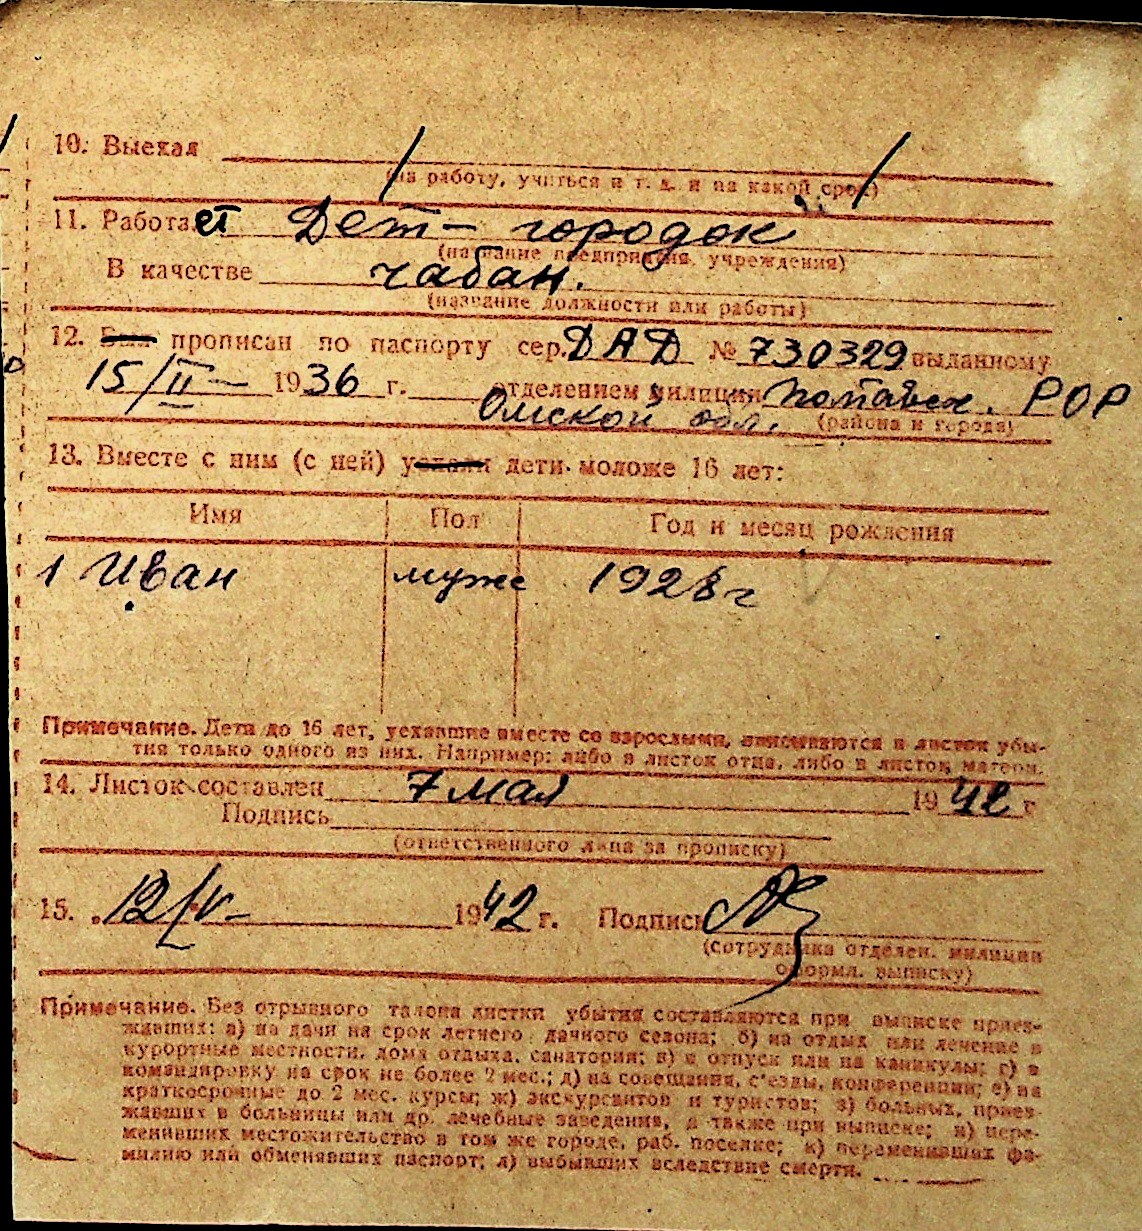 10. Выехал
(на работу, учиться и т. д. и на какой срок)
11. Работает Дет-городок
(название предприятия, учреждения)
В качестве чабан.
(название должности или работы)
12. прописан по паспорту сер. ДАД № 730329 выданному
15/II- 1936 г. отделением милиции РОР
Омской обл. (района и города)
13. Вместе с ним (с ней) дети моложе 16 лет:
Имя Пол Год и месяц рождения
1 Иван муже 1928 г
Примечание. Дети до 16 лет, уехавшие вместе со взрослыми, вписываются в листок убы-
тия только одного из них. Например: либо в листок отца, либо в листок матери.
14. Листок составлен 7 мая 1942 г
Подпись
(ответственного лица за прописку)
15. 12/V- 1942 г. Подпись
(сотрудника отделен. милиции
оформл. выписку)
Примечание. Без отрывного талона листки убытия составляются при выписке приез-
жавших: а) на дачи на срок летнего дачного сезона; б) на отдых или лечение в
курортные местности, дома отдыха, санатории; в) в отпуск или на каникулы; г) в
командировку на срок не более 2 мес.; д) на совещания, с'езды, конференции; е) на
краткосрочные до 2 мес. курсы; ж) экскурсантов и туристов; з) больных, приез-
жавших в больницы или др. лечебные заведения, а также при выписке; и) пере-
менивших местожительство в том же городе, раб. поселке; к) переменивших фа-
милию или обменявших паспорт; л) выбывших вследствие смерти.